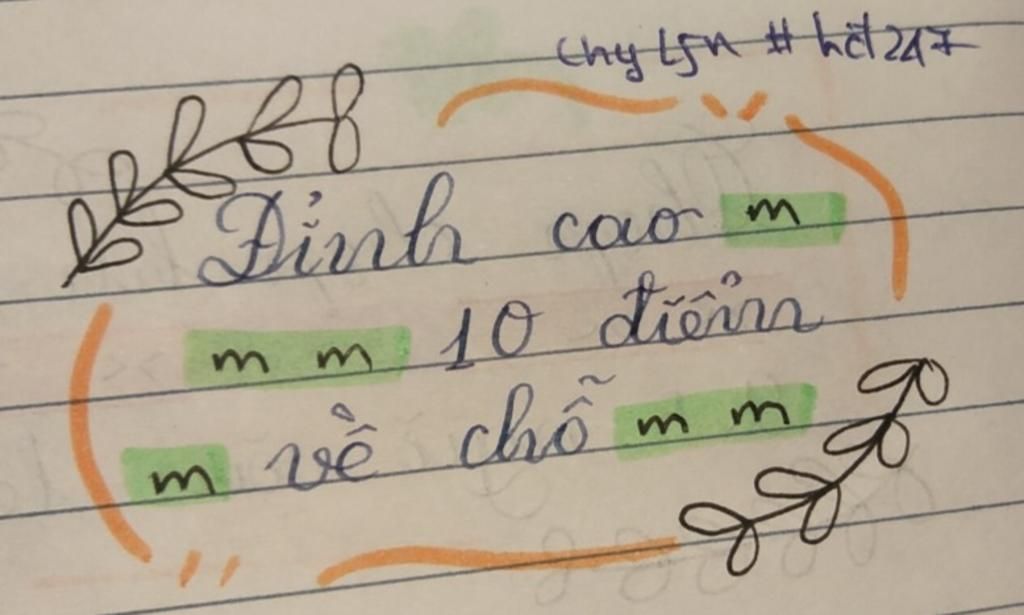 chy lsn # hđ247
Đỉnh cao m
m m 10 điểm
m về chỗ m m